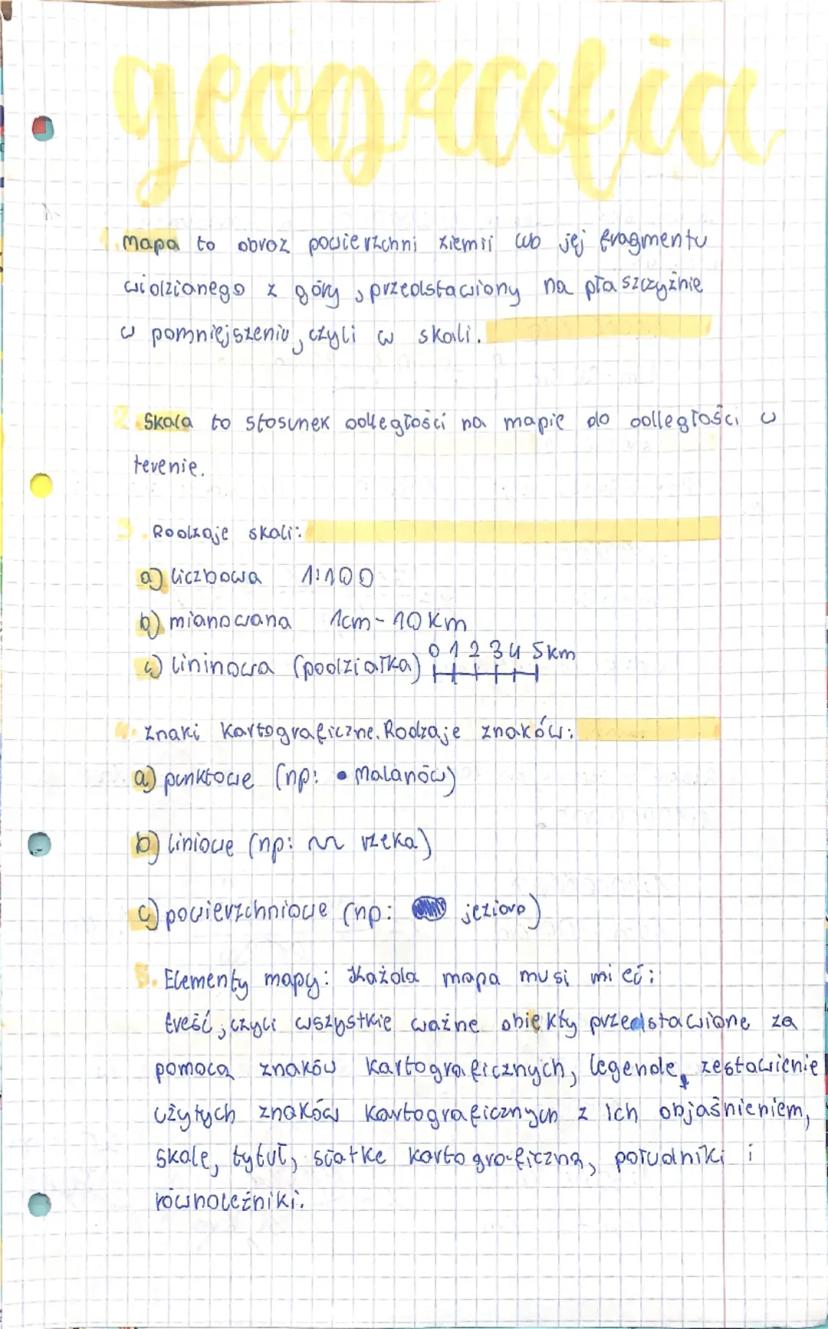 geografia
1. Mapa to obraz powierzchni ziemii lub jej fragmentu
widzianego z góry, przedstawiony na płaszczyźnie
w pomniejszeniu, czyli w skali.
2. Skala to stosunek odległości na mapie do odległości w
terenie.
3. Rodzaje skali:
a) liczbowa 1:100
b) mianowana 1cm - 10 km
c) lininowa (podziałka) 0 1 2 3 4 5 km
4. Znaki kartograficzne. Rodzaje znaków:
a) punktowe (np: • Malanów)
b) liniowe (np: rzeka)
c) powierzchniowe (np: jezioro)
5. Elementy mapy: Każda mapa musi mieć:
treść, czyli wszystkie ważne obiekty przedstawione za
pomocą znaków kartograficznych, legendę, zestawienie
użytych znaków kartograficznych z ich objaśnieniem,
skalę, tytuł, siatkę kartograficzną, południki i
równoleżniki.